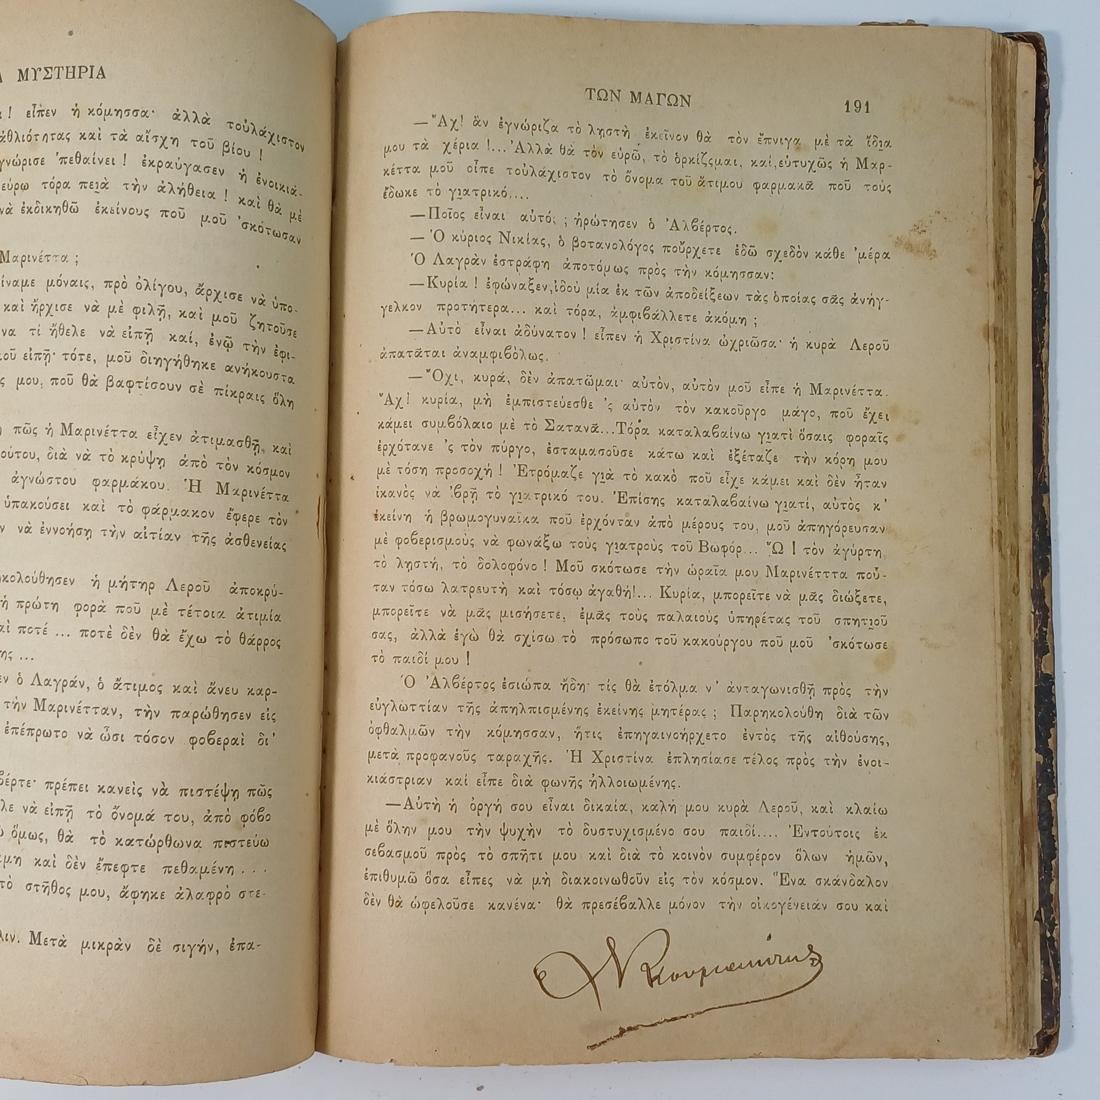 ΜΥΣΤΗΡΙΑ
! εἶπεν ἡ κόμησσα· ἀλλὰ τοὐλάχιστον
ἀθλιότητας καὶ τὰ αἴσχη τοῦ βίου !
γνώρισε 'πεθαίνει ! ἐκραύγασεν ἡ ἐνοικιά-
εύρω τόρα πειὰ τὴν ἀλήθεια ! καὶ θὰ μὲ
νὰ ἐκδικηθῶ ἐκείνους ποῦ μοῦ 'σκότωσαν
Μαρινέττα ;
ίναμε μόναις, πρὸ ὀλίγου, ἄρχισε νὰ ὑπο-
καὶ ἤρχισε νὰ μὲ φιλῇ, καὶ μοῦ ζητοῦσε
να τί ἤθελε νὰ εἰπῇ καί, ἐνῷ τὴν ἐφι-
οῦ εἰπῇ· τότε, μοῦ διηγήθηκε ἀνήκουστα
ς μου, ποῦ θὰ βαφτίσουν σὲ πίκραις ὅλη
πῶς ἡ Μαρινέττα εἶχεν ἀτιμασθῆ, καὶ
ούτου, διὰ νὰ τὸ κρύψῃ ἀπὸ τὸν κόσμον
ἀγνώστου φαρμάκου. Ἡ Μαρινέττα
ὑπακούσει καὶ τὸ φάρμακον ἔφερε τὸν
ν νὰ ἐννοήσῃ τὴν αἰτίαν τῆς ἀσθενείας
κολούθησεν ἡ μήτηρ Λεροῦ ἀποκρύ-
ἡ πρώτη φορὰ ποῦ μὲ τέτοια ἀτιμία
αὶ ποτέ ... ποτὲ δὲν θὰ ἔχω τὸ θάρρος
ης ...
εν ὁ Λαγράν, ὁ ἄτιμος καὶ ἄνευ καρ-
τὴν Μαρινέτταν, τὴν παρώθησεν εἰς
ἐπέπρωτο νὰ ὦσι τόσον φοβεραὶ δι'
βέρτε· πρέπει κανεὶς νὰ πιστέψῃ πῶς
λε νὰ εἰπῇ τὸ ὄνομά του, ἀπὸ φόβο
ὅμως, θὰ τὸ κατώρθωνα πιστεύω
μη καὶ δὲν ἔπεφτε πεθαμένη ...
τὸ στῆθος μου, ἄφηκε ἀλαφρὸ στε-
λιν. Μετὰ μικρὰν δὲ σιγήν, ἐπα-
ΤΩΝ ΜΑΓΩΝ 191
—Ἄχ! ἂν ἐγνώριζα τὸ λῃστὴ ἐκεῖνον θὰ τὸν ἔπνιγα μὲ τὰ ἴδια
μου τὰ χέρια !... Ἀλλὰ θὰ τὸν εὑρῶ, τὸ ὁρκίζομαι, καί, εὐτυχῶς ἡ Μαρ-
κέττα μοῦ εἶπε τοὐλάχιστον τὸ ὄνομα τοῦ ἄτιμου φαρμακᾶ ποῦ τοὺς
ἔδωκε τὸ γιατρικό....
—Ποῖος εἶναι αὐτό; ; ἠρώτησεν ὁ Ἀλβέρτος.
—Ὁ κύριος Νικίας, ὁ βοτανολόγος ποὔρχετε ἐδῶ σχεδὸν κάθε 'μέρα
Ὁ Λαγρὰν ἐστράφη ἀποτόμως πρὸς τὴν κόμησσαν:
—Κυρία ! ἐφώναξεν, ἰδοὺ μία ἐκ τῶν ἀποδείξεων τὰς ὁποίας σᾶς ἀνήγ-
γελκον προτήτερα... καὶ τόρα, ἀμφιβάλλετε ἀκόμη ;
—Αὐτὸ εἶναι ἀδύνατον ! εἶπεν ἡ Χριστίνα ὠχριῶσα· ἡ κυρὰ Λεροῦ
ἀπατᾶται ἀναμφιβόλως.
—Ὄχι, κυρά, δὲν ἀπατῶμαι· αὐτόν, αὐτὸν μοῦ εἶπε ἡ Μαρινέττα.
Ἄχ! κυρία, μὴ ἐμπιστεύεσθε 'ς αὐτὸν τὸν κακοῦργο μάγο, ποῦ ἔχει
κάμει συμβόλαιο μὲ τὸ Σατανᾶ...Τόρα καταλαβαίνω γιατὶ ὅσαις φοραῖς
ἐρχότανε 'ς τὸν πύργο, ἐσταμασοῦσε κάτω καὶ ἐξέταζε τὴν κόρη μου
μὲ τόση προσοχή ! Ἐτρόμαζε γιὰ τὸ κακὸ ποῦ εἶχε κάμει καὶ δὲν ἦταν
ἱκανὸς νὰ 'βρῇ τὸ γιατρικό του. Ἐπίσης καταλαβαίνω γιατί, αὐτὸς κ'
ἐκείνη ἡ βρωμογυναῖκα ποῦ ἐρχόνταν ἀπὸ μέρους του, μοῦ ἀπηγόρευσαν
μὲ φοβερισμοὺς νὰ φωνάξω τοὺς γιατροὺς τοῦ Βωφόρ... Ὢ ! τὸν ἀγύρτη,
τὸ λῃστή, τὸ δολοφόνο ! Μοῦ σκότωσε τὴν ὡραῖα μου Μαρινετττα ποῦ-
ταν τόσω λατρευτὴ καὶ τόσῳ ἀγαθή!... Κυρία, μπορεῖτε νὰ μᾶς διώξετε,
μπορεῖτε νὰ μᾶς μισήσετε, ἐμᾶς τοὺς παλαιοὺς ὑπηρέτας τοῦ σπητιοῦ
σας, ἀλλὰ ἐγὼ θὰ σχίσω τὸ πρόσωπο τοῦ κακούργου ποῦ μοῦ 'σκότωσε
τὸ παιδί μου !
Ὁ Ἀλβέρτος ἐσιώπα ἤδη· τίς θὰ ἐτόλμα ν' ἀνταγωνισθῇ πρὸς τὴν
εὐγλωττίαν τῆς ἀπηλπισμένης ἐκείνης μητέρας ; Παρηκολούθη διὰ τῶν
ὀφθαλμῶν τὴν κόμησσαν, ἥτις ἐπηγαινοήρχετο ἐντὸς τῆς αἰθούσης,
μετὰ προφανοῦς ταραχῆς. Ἡ Χριστίνα ἐπλησίασε τέλος πρὸς τὴν ἐνοι-
κιάστριαν καὶ εἶπε διὰ φωνῆς ἠλλοιωμένης.
—Αὐτὴ ἡ ὀργή σου εἶναι δικαία, καλή μου κυρὰ Λεροῦ, καὶ κλαίω
μὲ ὅλην μου τὴν ψυχὴν τὸ δυστυχισμένο σου παιδί.... Ἐντούτοις ἐκ
σεβασμοῦ πρὸς τὸ σπῆτι μου καὶ διὰ τὸ κοινὸν συμφέρον ὅλων ἡμῶν,
ἐπιθυμῶ ὅσα εἶπες νὰ μὴ διακοινωθοῦν εἰς τὸν κόσμον. Ἕνα σκάνδαλον
δὲν θὰ ὠφελοῦσε κανένα· θὰ πρεσέβαλλε μόνον τὴν οἰκογένειάν σου καὶ